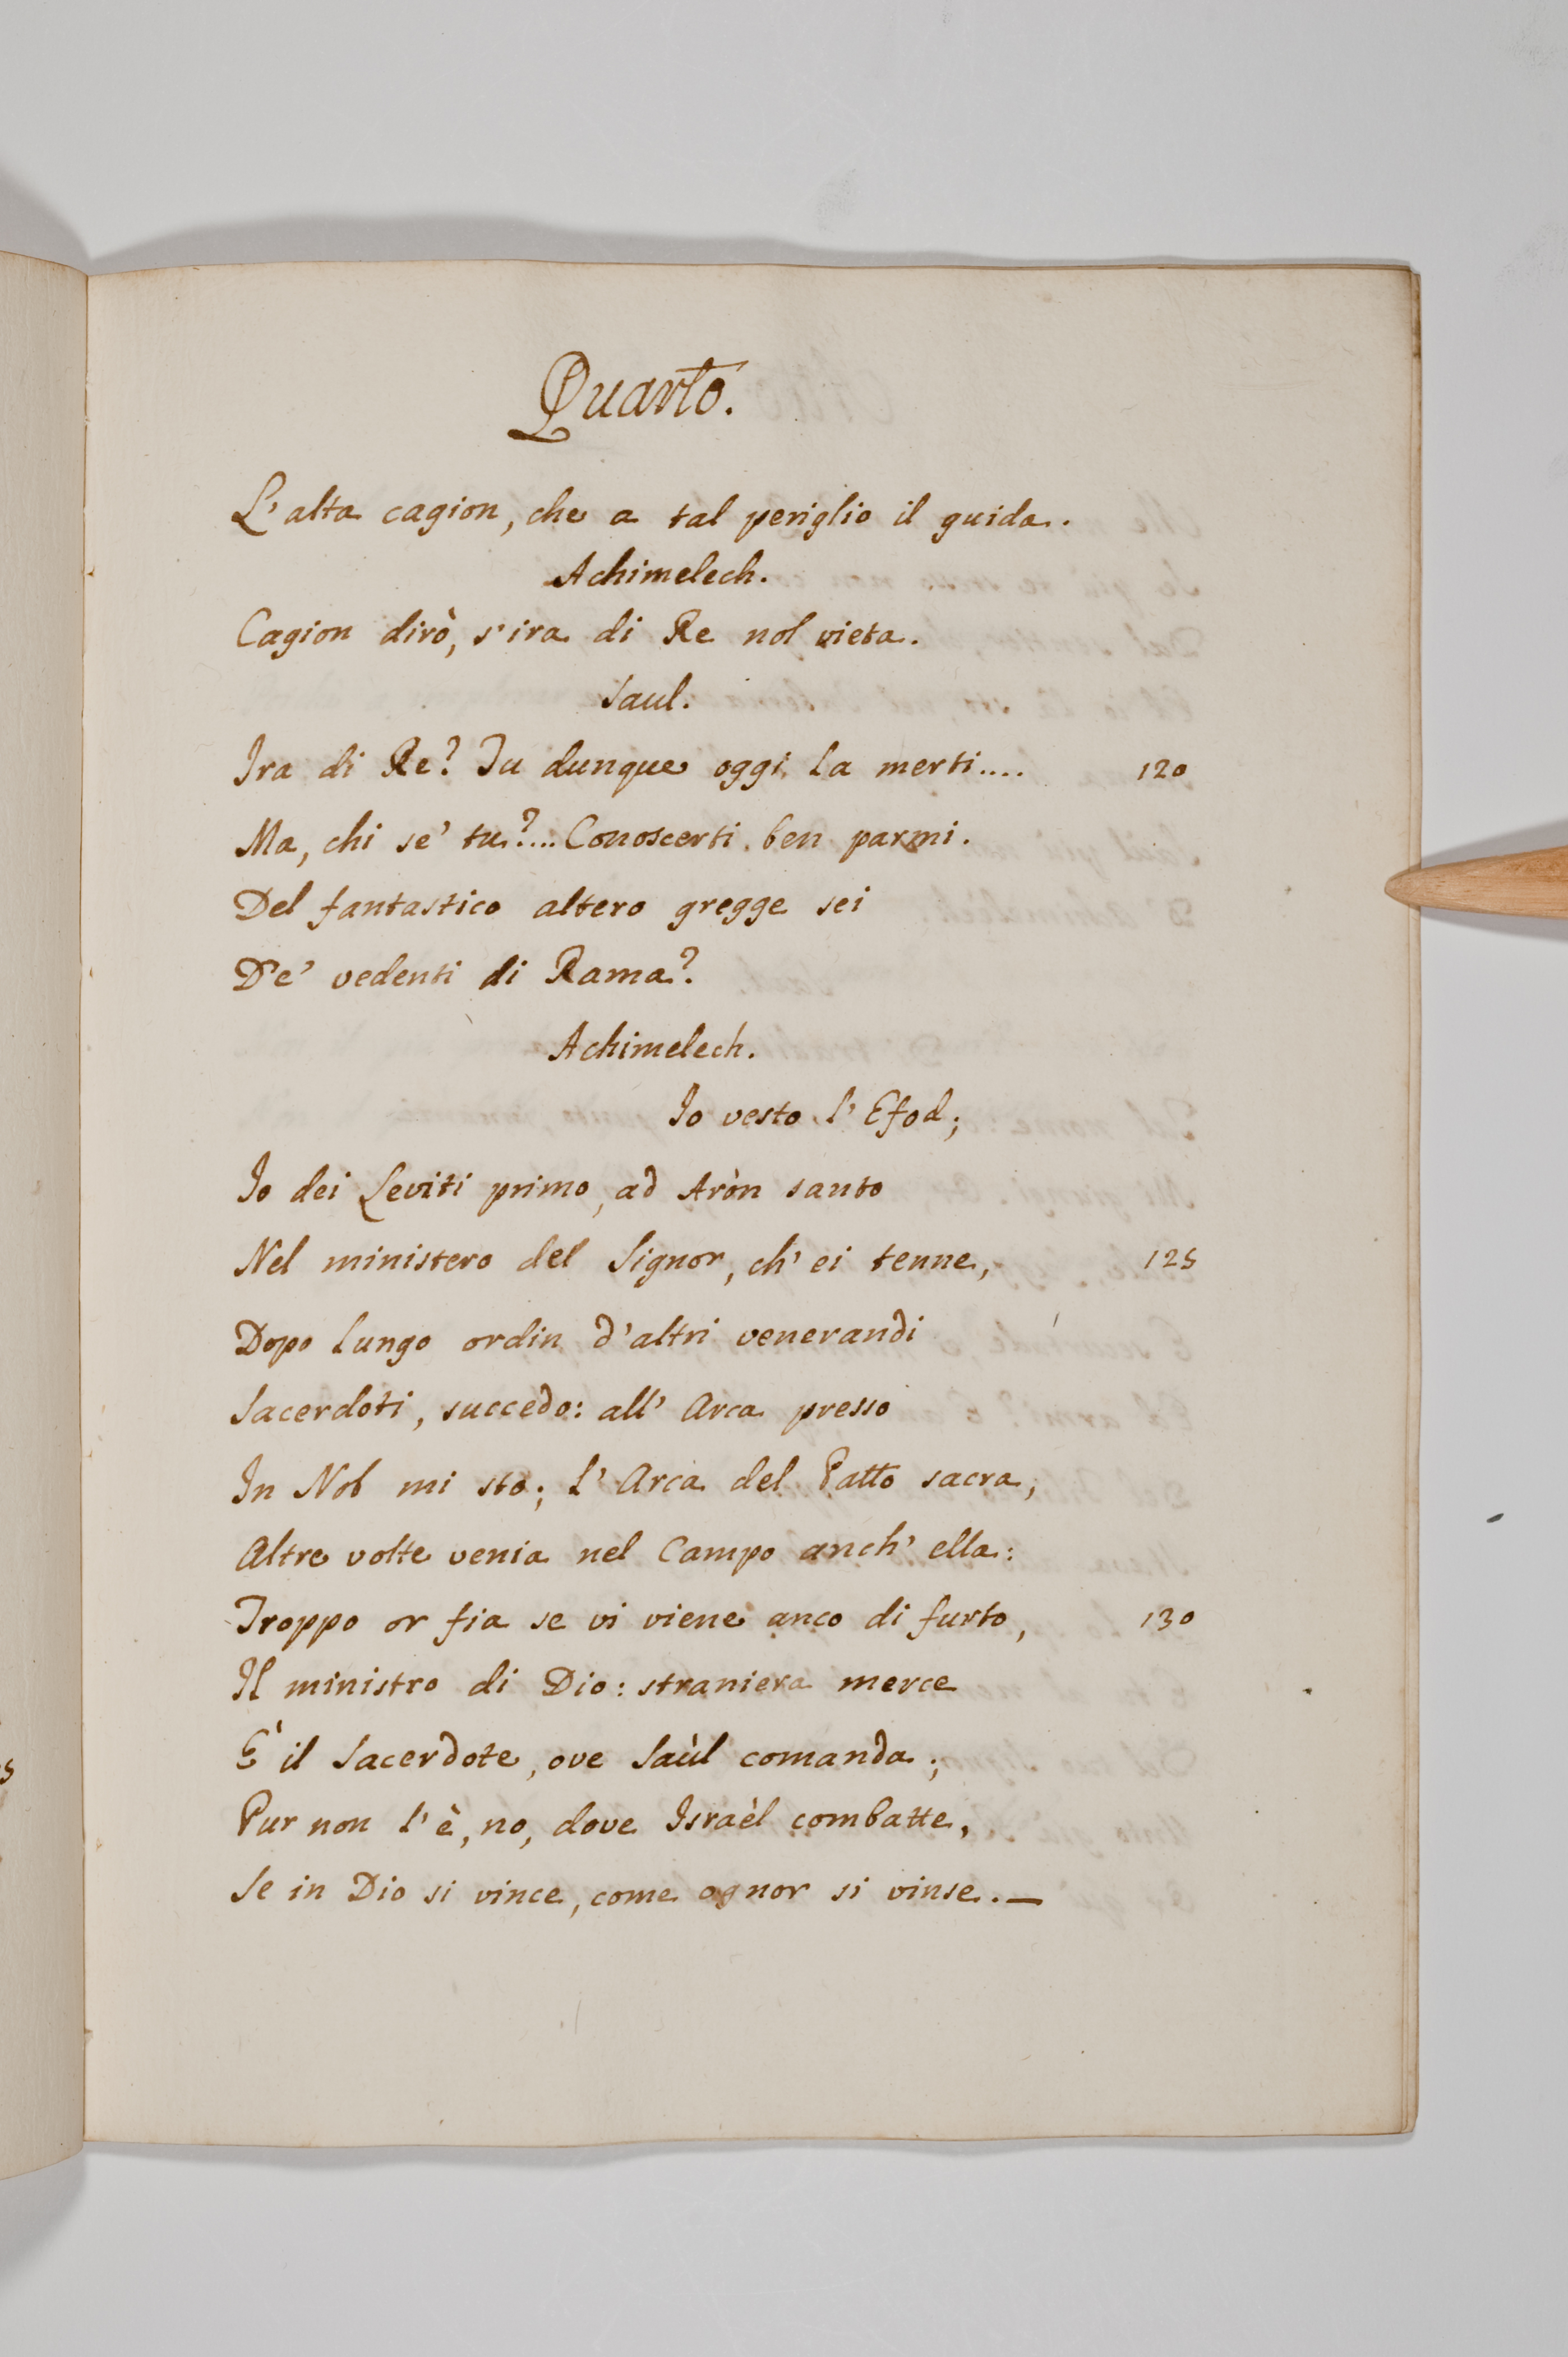 Quarto.
L'alta cagion, che a tal periglio il guida.
Achimelech.
Cagion dirò, s'ira di Re nol vieta.
Saul.
Ira di Re? Tu dunque oggi la merti.... 120
Ma, chi se' tu?... Conoscerti ben parmi.
Del fantastico altero gregge sei
De' vedenti di Rama?
Achimelech.
Io vesto l'Efod;
Io dei Leviti primo, ad Aròn santo
Nel ministero del Signor, ch'ei tenne, 125
Dopo lungo ordin d'altri venerandi
Sacerdoti, succedo: all'Arca presso
In Nob mi sto; l'Arca del Patto sacra,
Altre volte venia nel Campo anch'ella:
Troppo or fia se vi viene anco di furto, 130
Il ministro di Dio: straniera merce
È il Sacerdote, ove Saùl comanda;
Pur non l'è, no, dove Israèl combatte,
Se in Dio si vince, come ognor si vinse. —